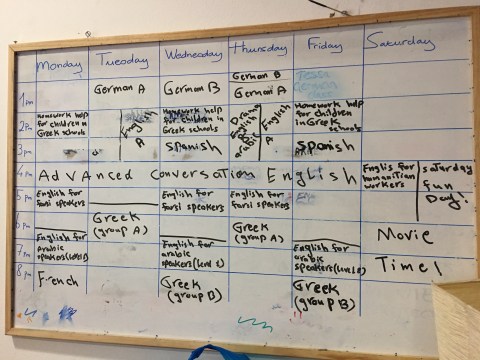 Monday Tuesday Wednesday Thursday Friday Saturday
1pm
German A
German B
German B
German A
2pm
Homework help
for children in
Greek schools
English
A
Homework help
for children in
Greek schools
Drama
English
arabic
English
A
Homework help
for children
in Greek
schools
3pm
Spanish
Spanish
4pm
Advanced Conversation English
Englis for
humanitian
workers
Saturday
fun
Day!
5pm
English for
farsi speakers
English for
farsi speakers
English for
farsi speakers
6pm
Greek
(group A)
Greek
(group A)
Movie
Time!
7pm
English for
Arabic
speakers (level 2)
English for
arabic
speakers (level 2)
English for
arabic
speakers (level 2)
8pm
French
Greek
(group B)
Greek
(group B)